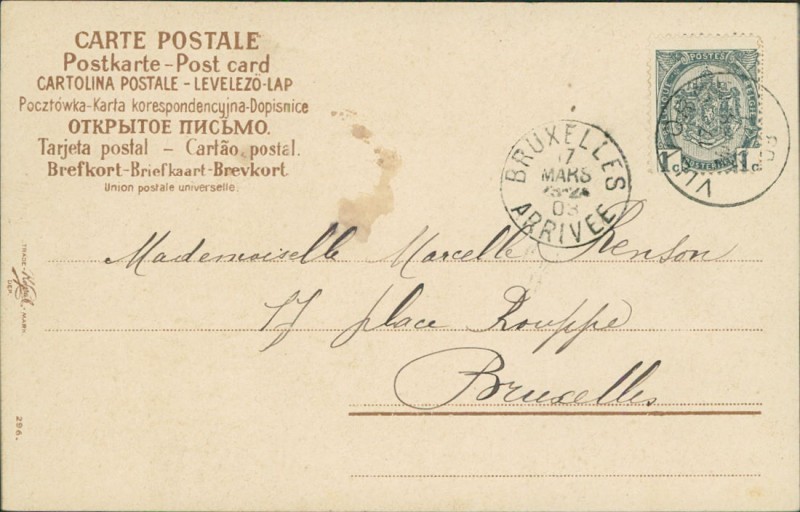 CARTE POSTALE
Postkarte-Post card
CARTOLINA POSTALE - LEVELEZÖ-LAP
Pocztówka-Karta korespondencyjna-Dopisnice
ОТКРЫТОЕ ПИСЬМО.
Tarjeta postal - Cartão postal.
Brefkort-Briefkaart-Brevkort.
Union postale universelle.
POSTES
1c 1c
BRUXELLES
17
MARS
03
ARRIVÉE
Mademoiselle Marcelle Renson
17 place Rouppe
Bruxelles
TRADE MARK
DEP.
296.